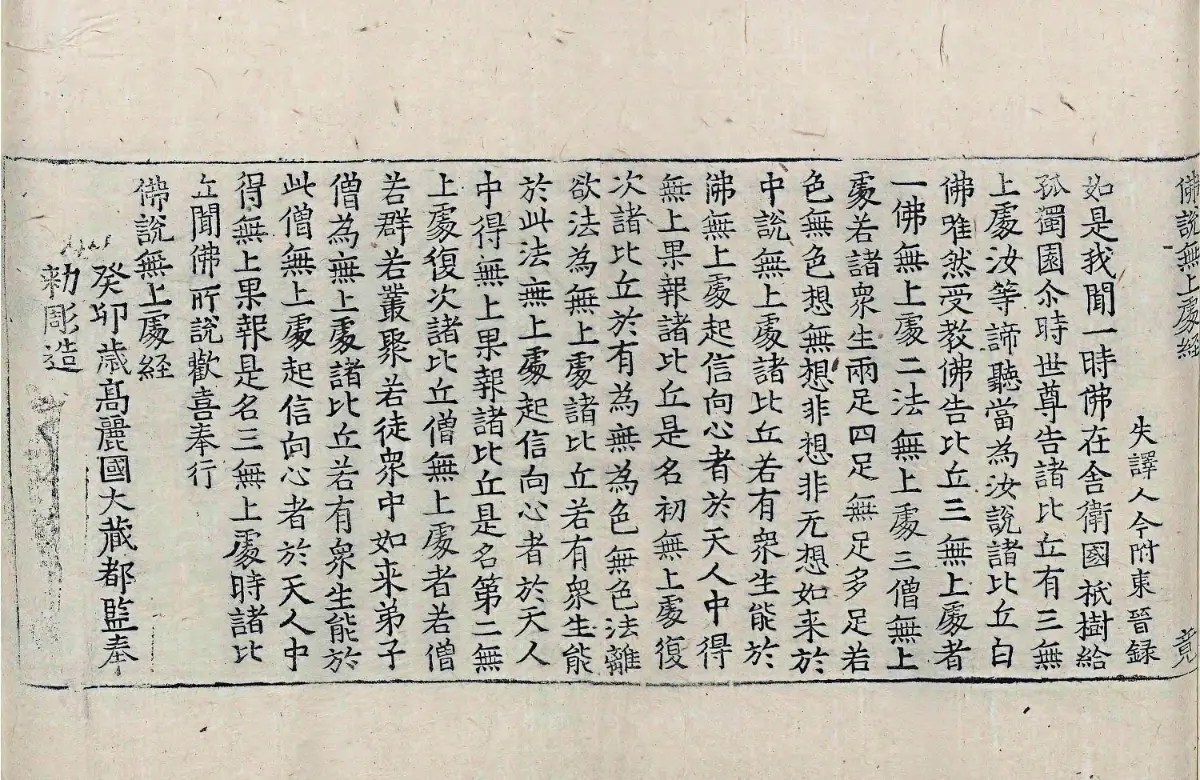 佛說無上處経 竟
失譯人今附東晉録
如是我聞一時佛在舍衛國祇樹給
孤獨園尒時世尊告諸比丘有三無
上處汝等諦聽當為汝說諸比丘白
佛唯然受教佛告比丘三無上處者
一佛無上處二法無上處三僧無上
處若諸衆生兩足四足無足多足若
色無色想無想非想非无想如来於
中說無上處諸比丘若有衆生能於
佛無上處起信向心者於天人中得
無上果報諸比丘是名初無上處復
次諸比丘於有為無為色無色法離
欲法為無上處諸比丘若有衆生能
於此法無上處起信向心者於天人
中得無上果報諸比丘是名第二無
上處復次諸比丘僧無上處者若僧
若群若叢聚若徒衆中如来弟子
僧為無上處諸比丘若有衆生能於
此僧無上處起信向心者於天人中
得無上果報是名三無上處時諸比
丘聞佛所說歡喜奉行
佛說無上處経
癸卯歳高麗國大藏都監奉
勑彫造